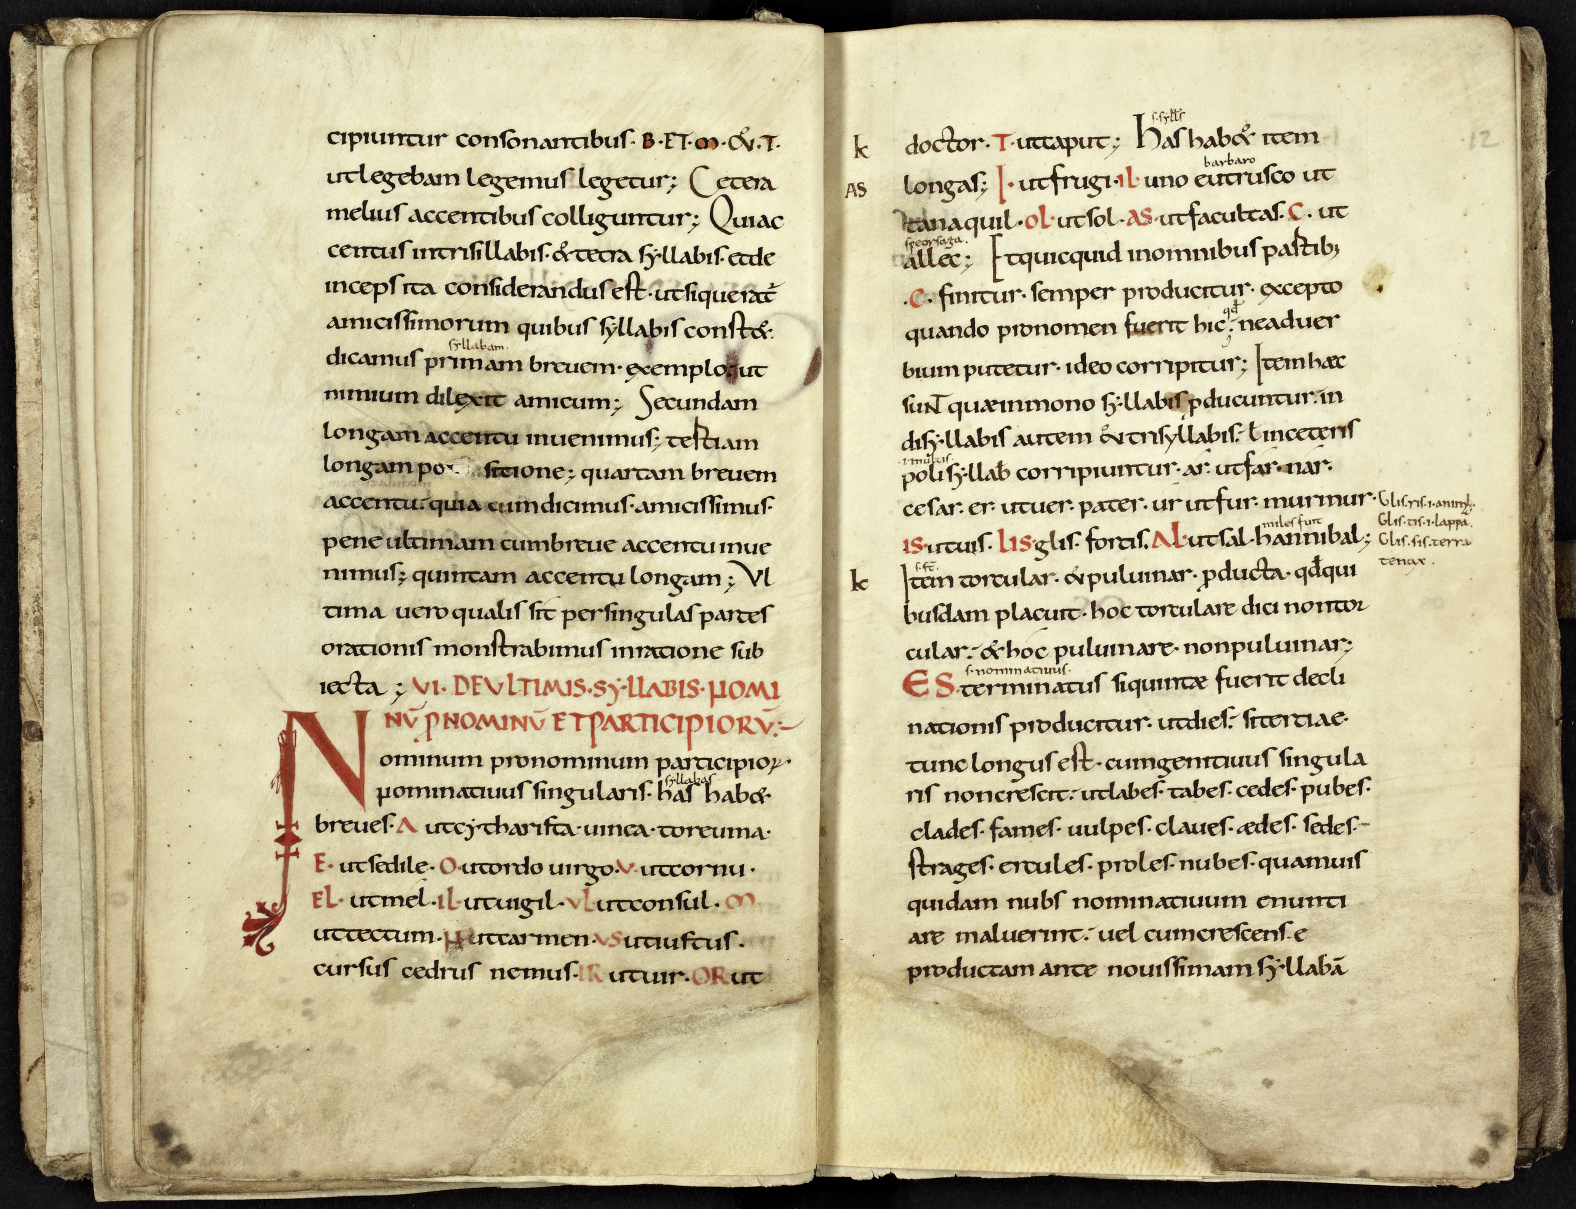 cipiuntur consonantibus· B·ET·M·&·T·
utlegebam legemus legetur; Cetera
melius accentibus colliguntur; Quiac
centus intrisillabis·&tetra syllabis·etde
inceps ita considerandus est·utsiquerat̄
amicissimorum quibus syllabis const&·
syllabam·
dicamus primam breuem·exemplo·ut
nimium dilexit amicum; Secundam
longam accentu inuenimus; tertiam
longam po sitione; quartam breuem
accentu·quia cumdicimus·amicissimus·
peneultimam cumbreue accentu inue
nimus; quintam accentu longam; Vl
tima uero qualis sit persingulas partes
orationis monstrabimus inratione sub
iecta; VI·DEVLTIMIS·SYLLABIS·NOMI
NŪ PNOMINŪ ETPARTICIPIORŪ:
Nominum pronominum participioꝝ·
syllabas
Nominatiuus singularis·has hab&·
breues·A utcytharista·uinea·toreuma·
E·utsedile·O·utordo uirgo·V·utcornu·
EL·utmel·IL·utuigil·VL·utconsul·M
uttectum·N·utcarmen·VS·utiustus·
cursus cedrus nemus·IR utuir·OR ut
k
s·syllꝭ
doctor·T·utcaput; Has hab& item
barbaro
AS
longas; I·utfrugi·IL·uno eutrusco ut
tanaquil·OL·utsol·AS·utfacultas·C·ut
allec; Etquicquid inomnibus partib;
·C·finitur·semper producitur·excepto
qđ
quando pronomen fuerit hic; neaduer
bium putetur·ideo corripitur; Item hæc
sunt quæinmono syllabis pducuntur·in
disyllabis autem & trisyllabis·ł inceteris
i·multis·
polisyllab̄ corripiuntur·ar·utfar·nar·
cesar·er·utuer·pater·ur utfur·murmur·
Glis·ris·i·animł·
Glis·tis·i·lappa·
miles fuit
IS·utuis·LIS·glis·fortis·AL·utsal·hannibal;
Glis·sis·terra
tenax·
k
Item torcular·&puluinar·pducta·qđqui
busdam placuit·hoc torculare dici nontor
cular·&hoc puluinare·nonpuluinar;
s·nominatiuus·
ES·terminatus siquintæ fuerit decli
nationis producitur·utdies·sitertiae·
tunc longus est·cuingenitiuus singula
ris noncrescit·utlabes·tabes·cedes·pubes·
clades·fames·uulpes·claues·ædes·sedes·
strages·ercules·proles·nubes·quamuis
quidam nubs nominatiuum enunti
are maluerint·uel cumcrescens·e
productam ante nouissimam syllabā
12